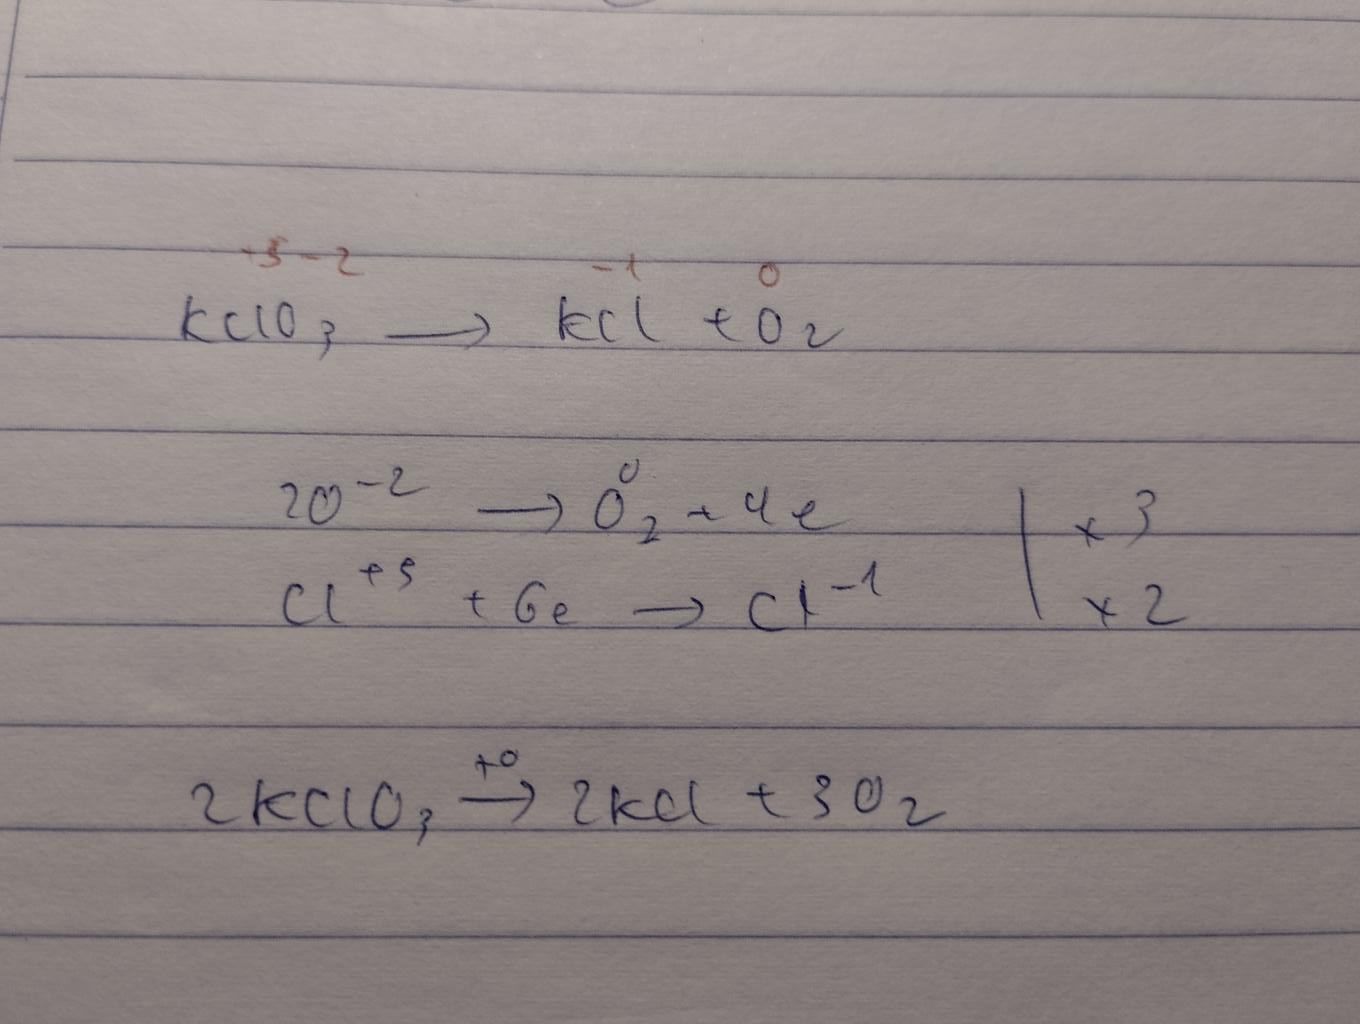 +5 -2 -1 0
KClO3 → KCl + O2
2O-2 → O2 0 + 4e | x3
Cl+5 + 6e → Cl-1 | x2
2KClO3 to → 2KCl + 3O2